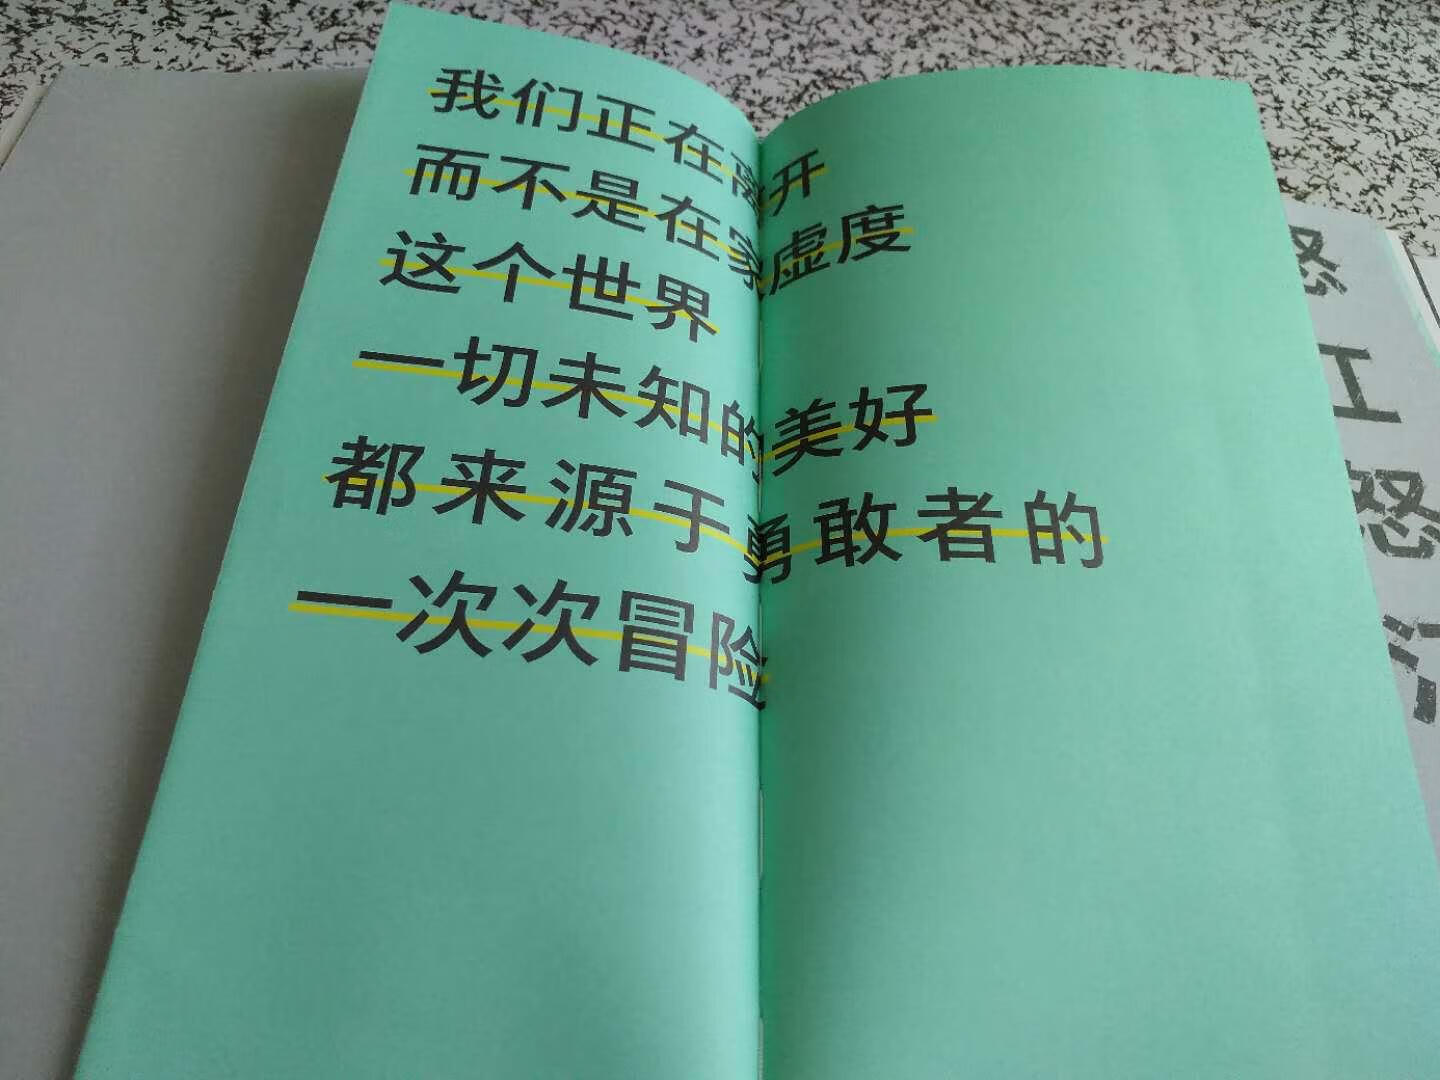 我们正在离开
而不是在家虚度
这个世界
一切未知的美好
都来源于勇敢者的
一次次冒险
怒
江
怒
江